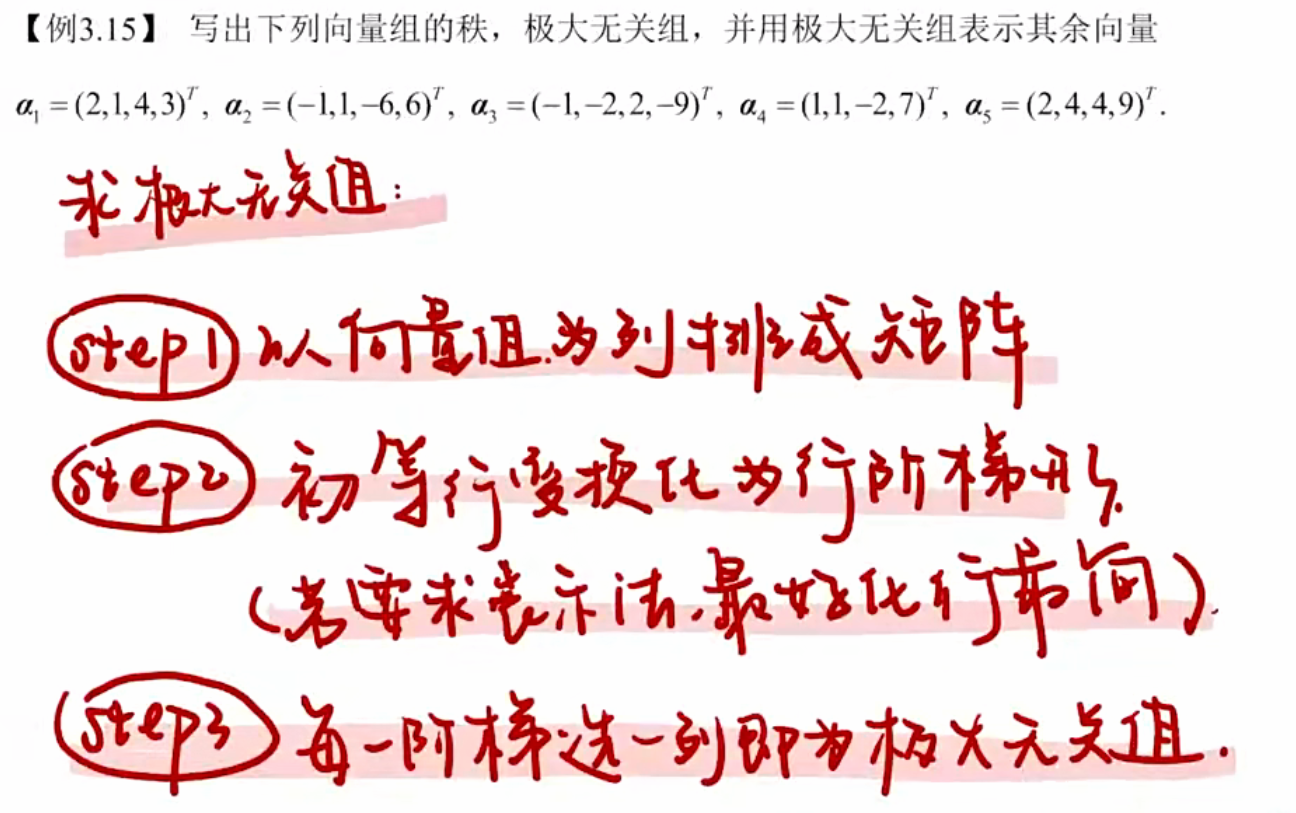 【例3.15】 写出下列向量组的秩，极大无关组，并用极大无关组表示其余向量
α₁ = (2,1,4,3)ᵀ, α₂ = (−1,1,−6,6)ᵀ, α₃ = (−1,−2,2,−9)ᵀ, α₄ = (1,1,−2,7)ᵀ, α₅ = (2,4,4,9)ᵀ.
求极大无关组:
step1 以向量组为列排成矩阵
step2 初等行变换化为行阶梯形.
(若要求表示法,最好化行最简).
step3 每一阶梯选一列即为极大无关组.